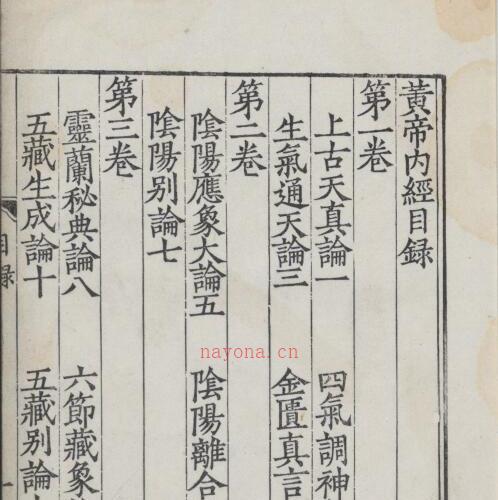 黃帝內經目録
第一卷
上古天真論一 四氣調神
生氣通天論三 金匱真言
第二卷
陰陽應象大論五 陰陽離合
陰陽别論七
第三卷
靈蘭秘典論八 六節藏象
五藏生成論十 五藏别論
目録
nayona.cn